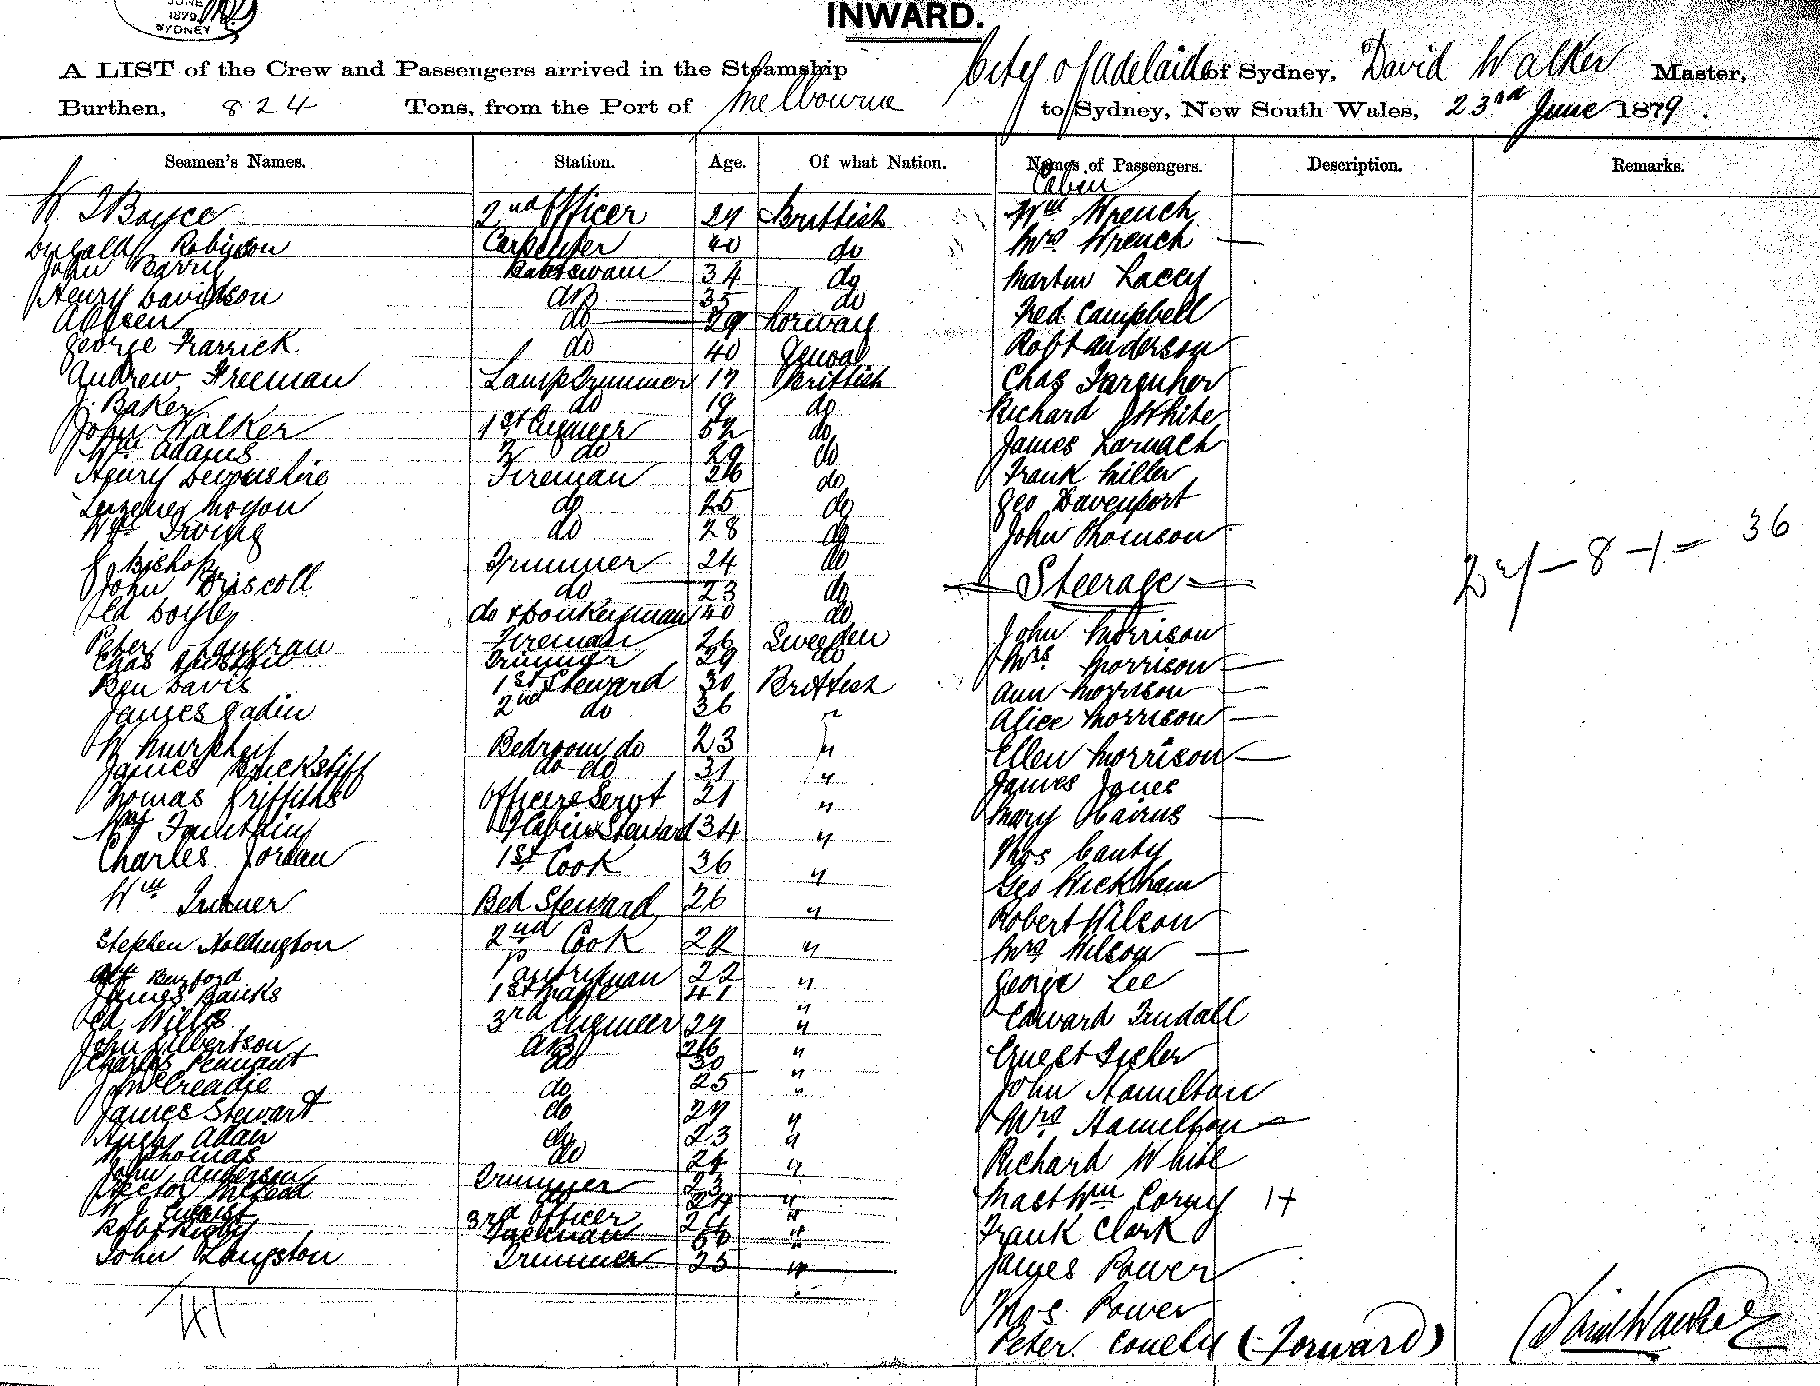 JUNE
1879
SYDNEY
INWARD.
A LIST of the Crew and Passengers arrived in the Steamship City of Adelaide of Sydney, David Walker Master,
Burthen, 824 Tons, from the Port of Melbourne to Sydney, New South Wales, 23rd June 1879.
Seamen's Names. Station. Age. Of what Nation. Names of Passengers. Description. Remarks.
Cabin
W Boyce 2nd Officer 29 Brittish Wm Wrench
Robinson Carpenter 40 do Mrs Wrench —
John Barry 34 do Martin Lacey
Henry Davidson AB 35 do Fred Campbell
do 29 Norway Robt Anderson
George do 40 Chas Farquher
Andrew Freeman Lamp Trimmer 17 Brittish Richard White
J. Baker do 19 do James Larnach
John Walker 1st Engineer 52 do Frank Miller
Wm Adams 2 do 29 do Geo Davenport
Henry Devonshire Fireman 26 do John Thomson
do 25 do
Wm Irving do 28 do 36
Bishop Trimmer 24 do — Steerage —
John Driscoll do 23 do
Ed Doyle do & Donkeyman 40 do John Morrison
Peter Fireman 26 Sweeden Mrs Morrison —
Chas Trimmer 29 do Ann Morrison —
Ben Davis 1st Steward 30 Brittish Alice Morrison —
James 2nd do 36 " Ellen Morrison —
W Murphey Bedroom do 23 " James Jones
James do do 31 " Mary —
Thomas Griffiths Officers Servt 21 " Thos Canty
Fountain Steward 34 " Geo Wickham
Charles Jordan 1st Cook 36 " Robert Wilson
Wm Bed Steward 26 " Mrs Wilson —
Stephen Holdington 2nd Cook 22 " George Lee
Burford Pantryman 22 " Edward Tindall
James Banks 1st Mate 41 " Ernest
Ed Wills 3rd Engineer 29 " John Hamilton
John Gilbertson AB 26 " Mrs Hamilton —
Charles Pennant do 30 " Richard White
McCreadie do 25 " Mast Wm 1+
James Stewart do 27 " Frank Clark
Angus Adair do 23 " James Power
W Thomas do 24 " Thos. Power
John Anderson Trimmer 23 " Peter (Forward)
Hector McLeod do 24 "
W J 3rd Officer 26 "
Robt 50 "
John Langston Trimmer 25 "
41
David Walker